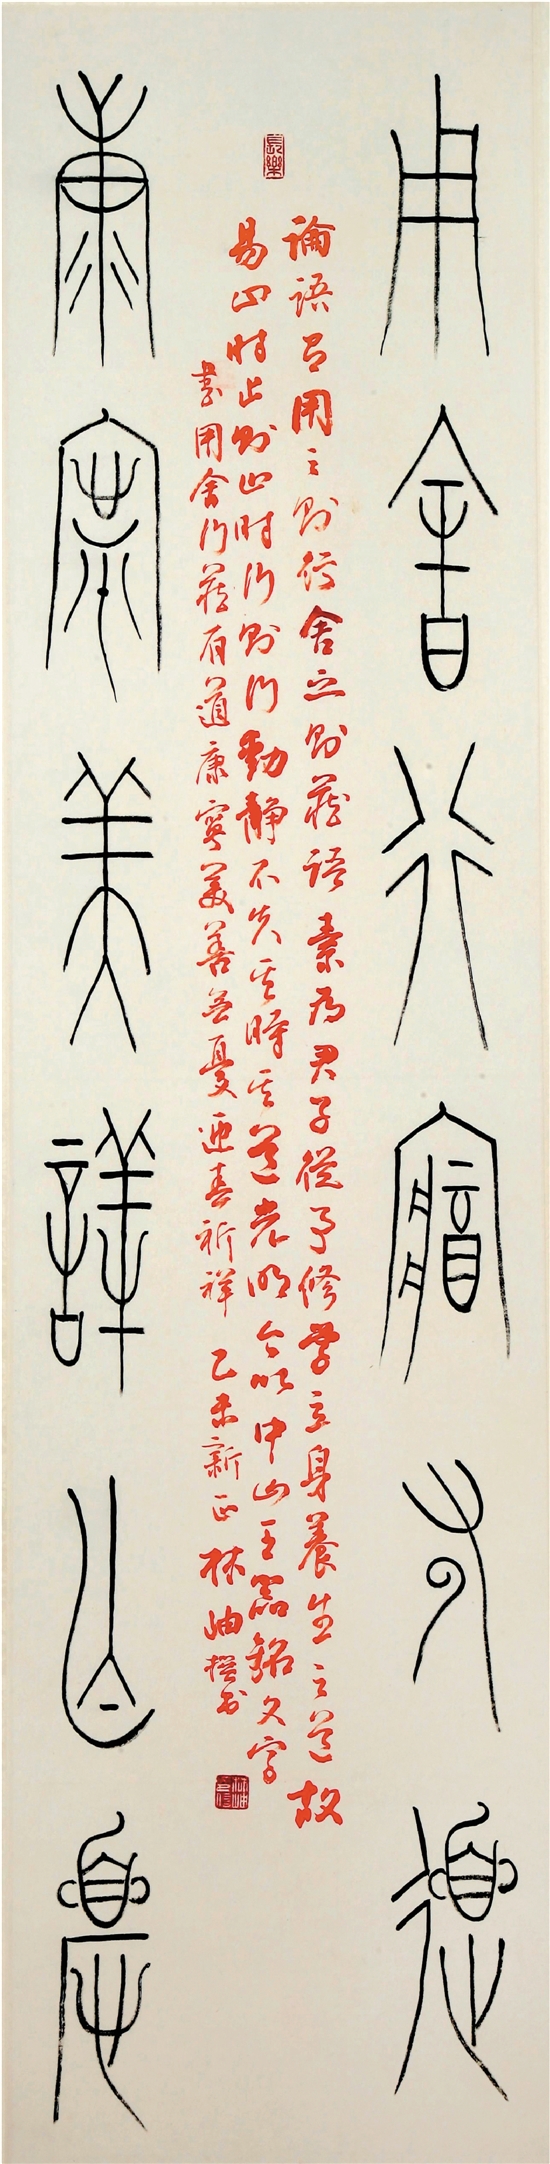 用舍行藏有道
論語有用之則行舍之則藏語素為君子從事修學立身養生之道故
易曰時止則止時行則行動靜不失其時其道光明今以中山王器銘文字
書用舍行藏有道康寧美善無憂迎春祈祥 乙未新正林岫撰書
康寧美善亡憂
長樂